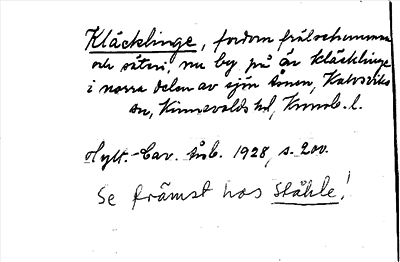 Kläcklinge, fordom frälsehemman
och säteri, nu by på ör Kläcklinge
i norra delen av sjön Åsnen, Kalvsviks
sn, Kinnevalds hd, Kronob. l.
Hylt.-Cav. årsb. 1928, s. 200.
Se främst hos Ståhle!